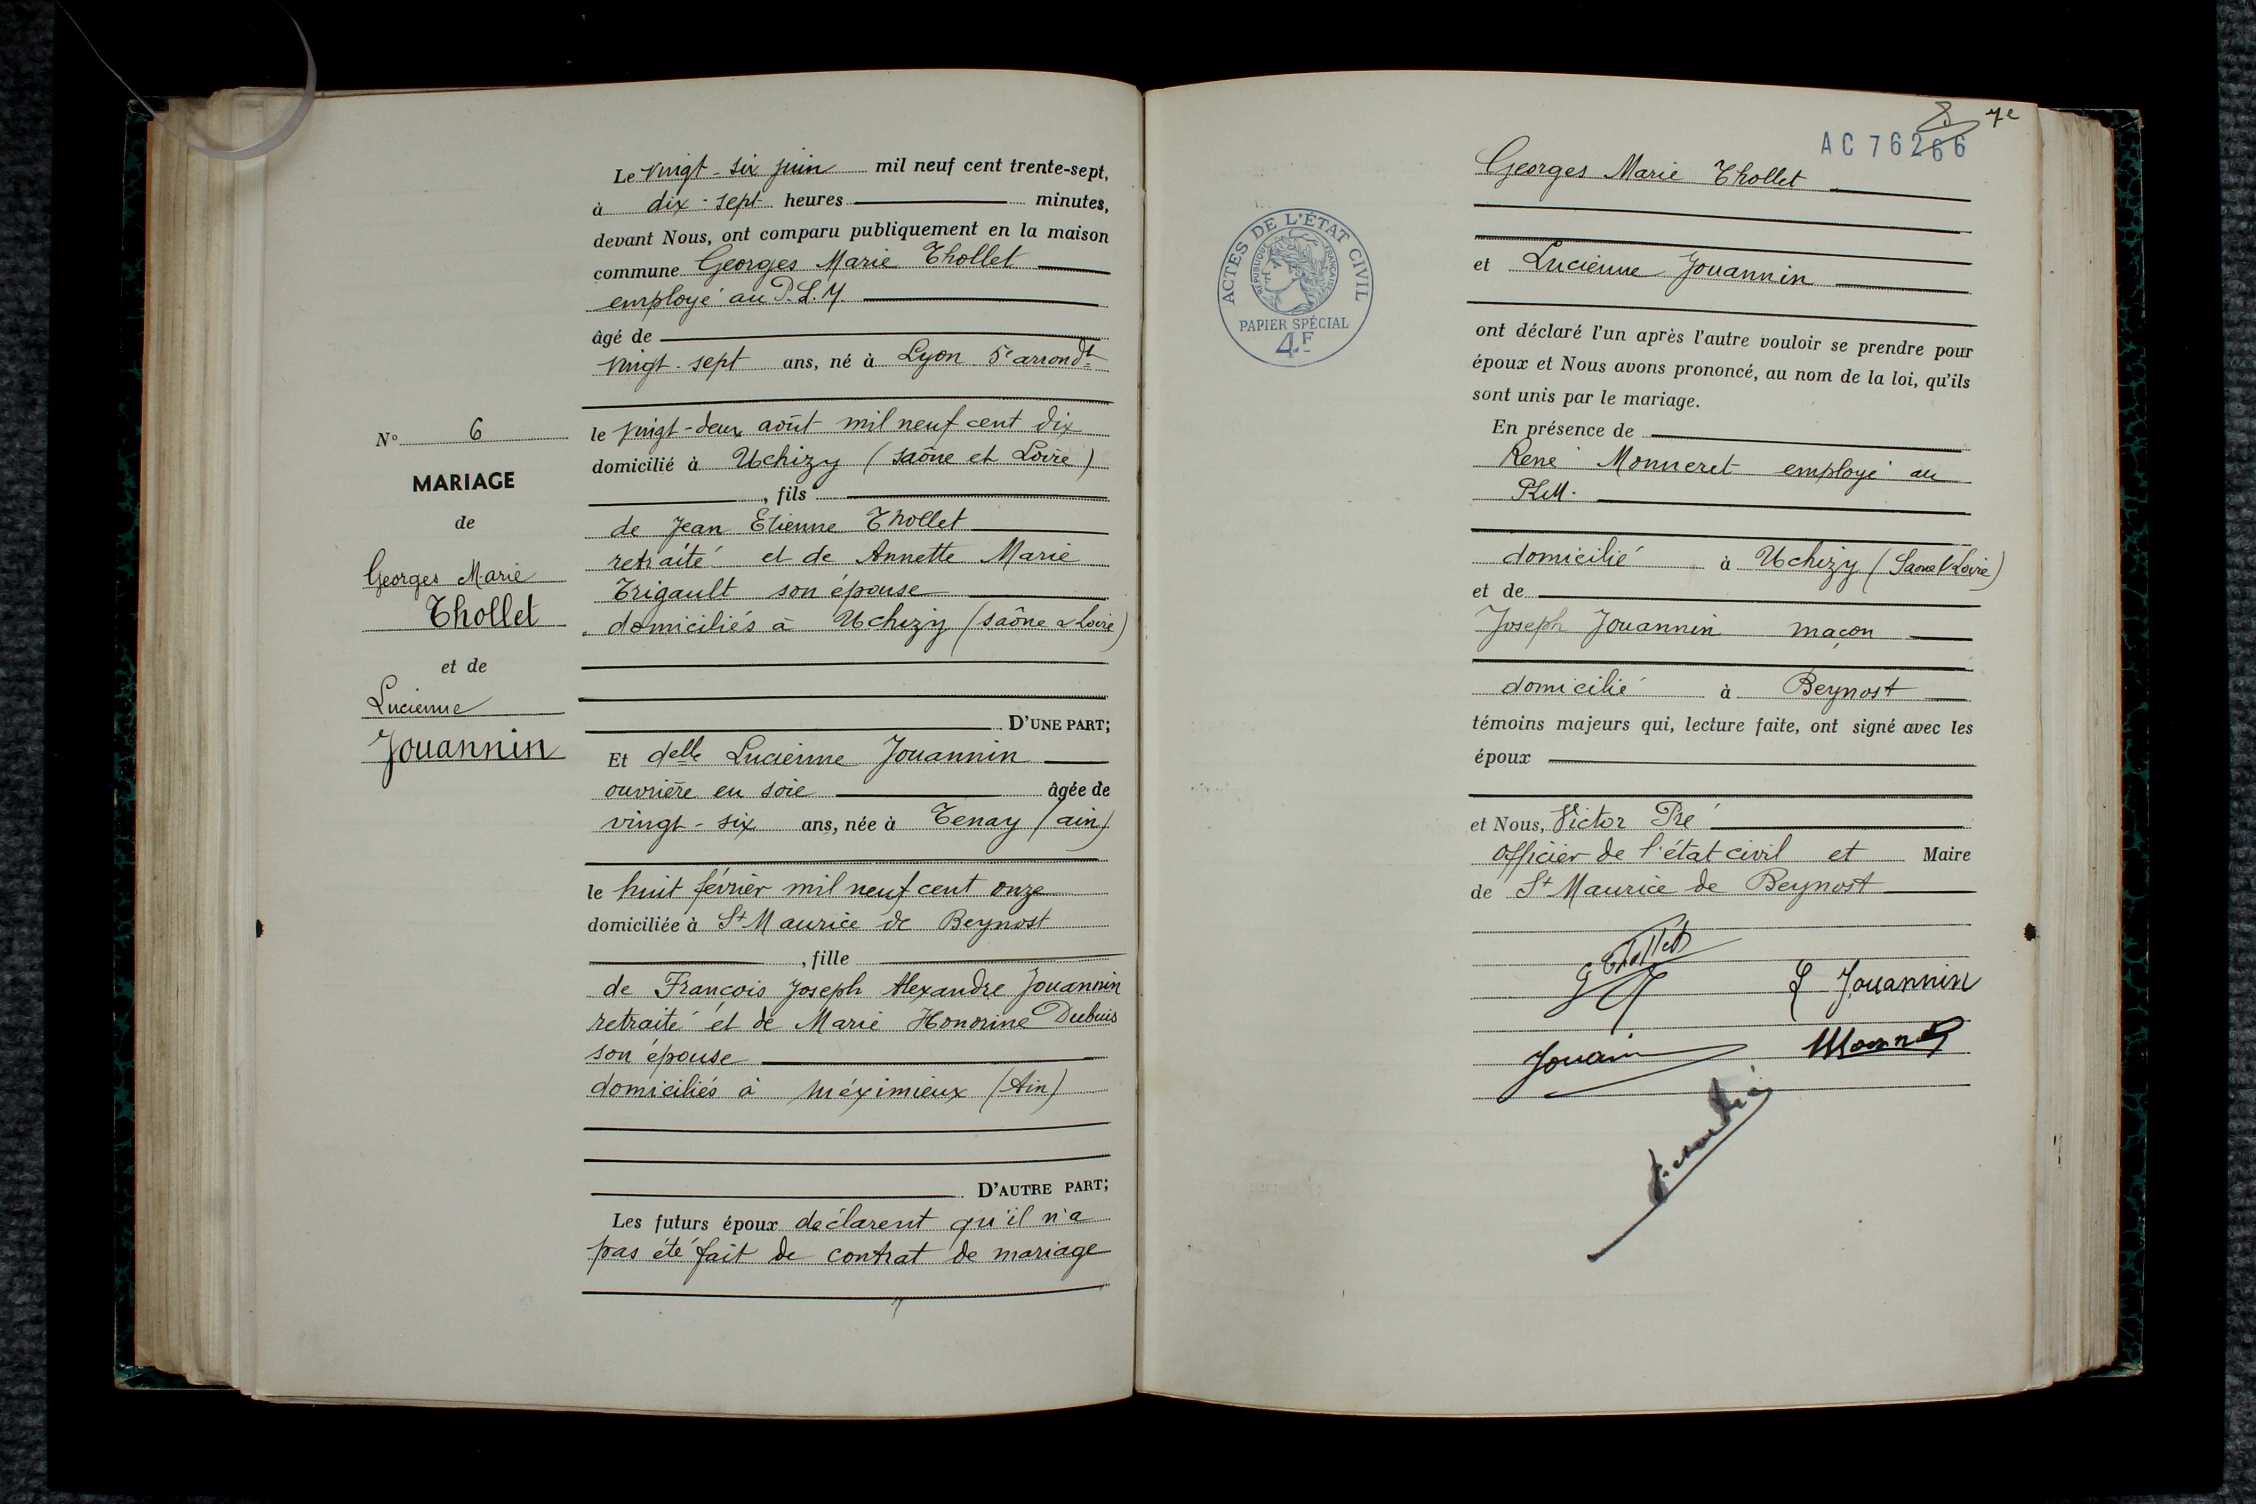 Le vingt-six juin mil neuf cent trente-sept,
à dix-sept heures minutes,
devant Nous, ont comparu publiquement en la maison
commune Georges Marie Thollet
employé au P.L.M.
âgé de
vingt-sept ans, né à Lyon 5e arrondt
N° 6
le vingt-deux août mil neuf cent dix
domicilié à Uchizy (saône et Loire)
MARIAGE
, fils
de
de Jean Etienne Thollet
retraité et de Annette Marie
Georges Marie
Trigault son épouse
Thollet
domiciliés à Uchizy (saône & Loire)
et de
Lucienne
D'UNE PART;
Jouannin
Et delle Lucienne Jouannin
ouvrière en soie âgée de
vingt-six ans, née à Tenay (ain)
le huit février mil neuf cent onze
domiciliée à St Maurice de Beynost
, fille
de François Joseph Alexandre Jouannin
retraité et de Marie Honorine Dubuis
son épouse
domiciliés à Méximieux (Ain)
D'AUTRE PART;
Les futurs époux déclarent qu'il n'a
pas été fait de contrat de mariage
8 7e
AC 76266
Georges Marie Thollet
ACTES DE L'ÉTAT CIVIL
RÉPUBLIQUE FRANÇAISE
PAPIER SPÉCIAL
4F
et Lucienne Jouannin
ont déclaré l'un après l'autre vouloir se prendre pour
époux et Nous avons prononcé, au nom de la loi, qu'ils
sont unis par le mariage.
En présence de
René Monneret employé au
PLM.
domicilié à Uchizy (Saone & Loire)
et de
Joseph Jouannin maçon
domicilié à Beynost
témoins majeurs qui, lecture faite, ont signé avec les
époux
et Nous, Victor Pré
officier de l'état civil et Maire
de St Maurice de Beynost
G Thollet
L Jouannin